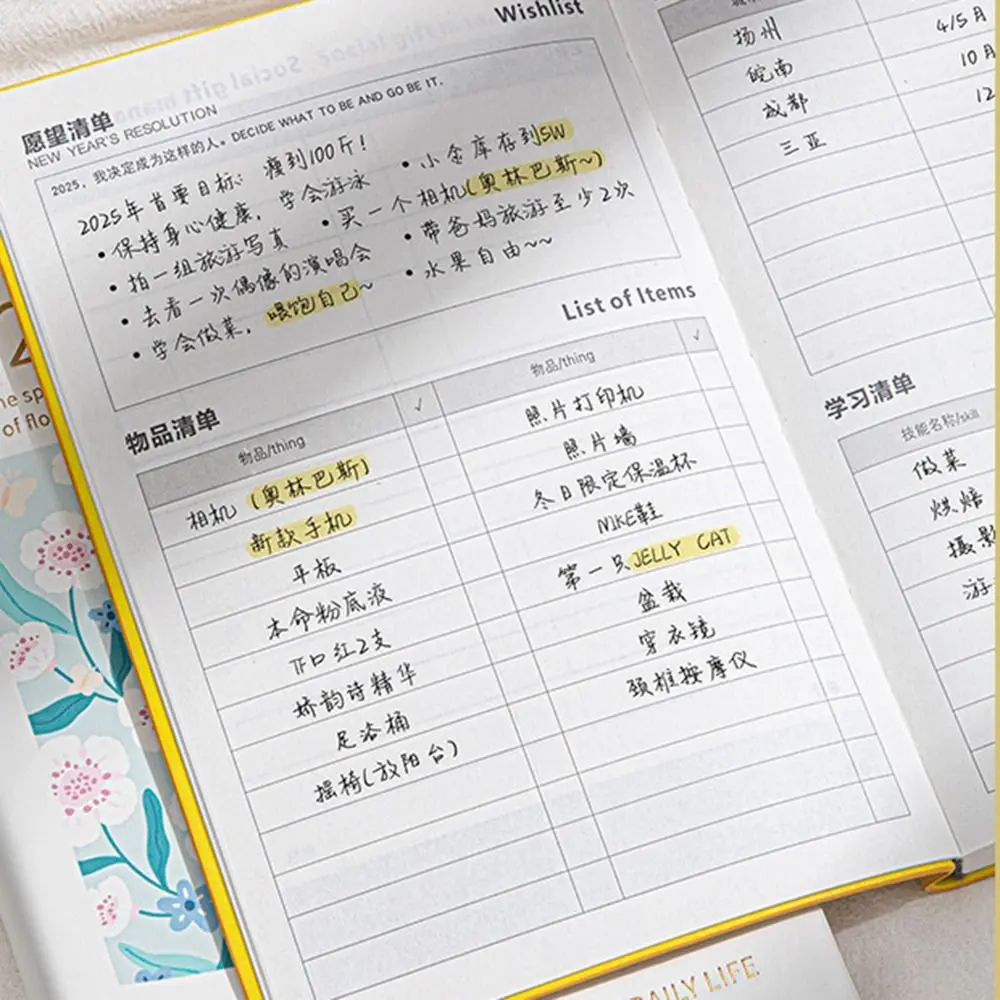 Wishlist
愿望清单
NEW YEAR'S RESOLUTION
2025,我决定成为这样的人。DECIDE WHAT TO BE AND GO BE IT.
2025年首要目标: 瘦到100斤!
• 保持身心健康,学会游泳
• 拍一组旅游写真
• 去看一次偶像的演唱会
• 学会做菜,喂饱自己~
• 小金库存到5W
• 买一个相机(奥林巴斯~)
• 带爸妈旅游至少2次
• 水果自由~~
List of Items
物品清单
物品/thing
√
相机(奥林巴斯)
新款手机
平板
本命粉底液
TF口红2支
娇韵诗精华
足浴桶
摇椅(放阳台)
物品/thing
√
照片打印机
照片墙
冬日限定保温杯
NIKE鞋
第一只JELLY CAT
盆栽
穿衣镜
颈椎按摩仪
扬州 4/5月
皖南 10月
成都 12
三亚
学习清单
技能名称/skill
做菜
烘焙
摄影
游
of flo
DAILY LIFE